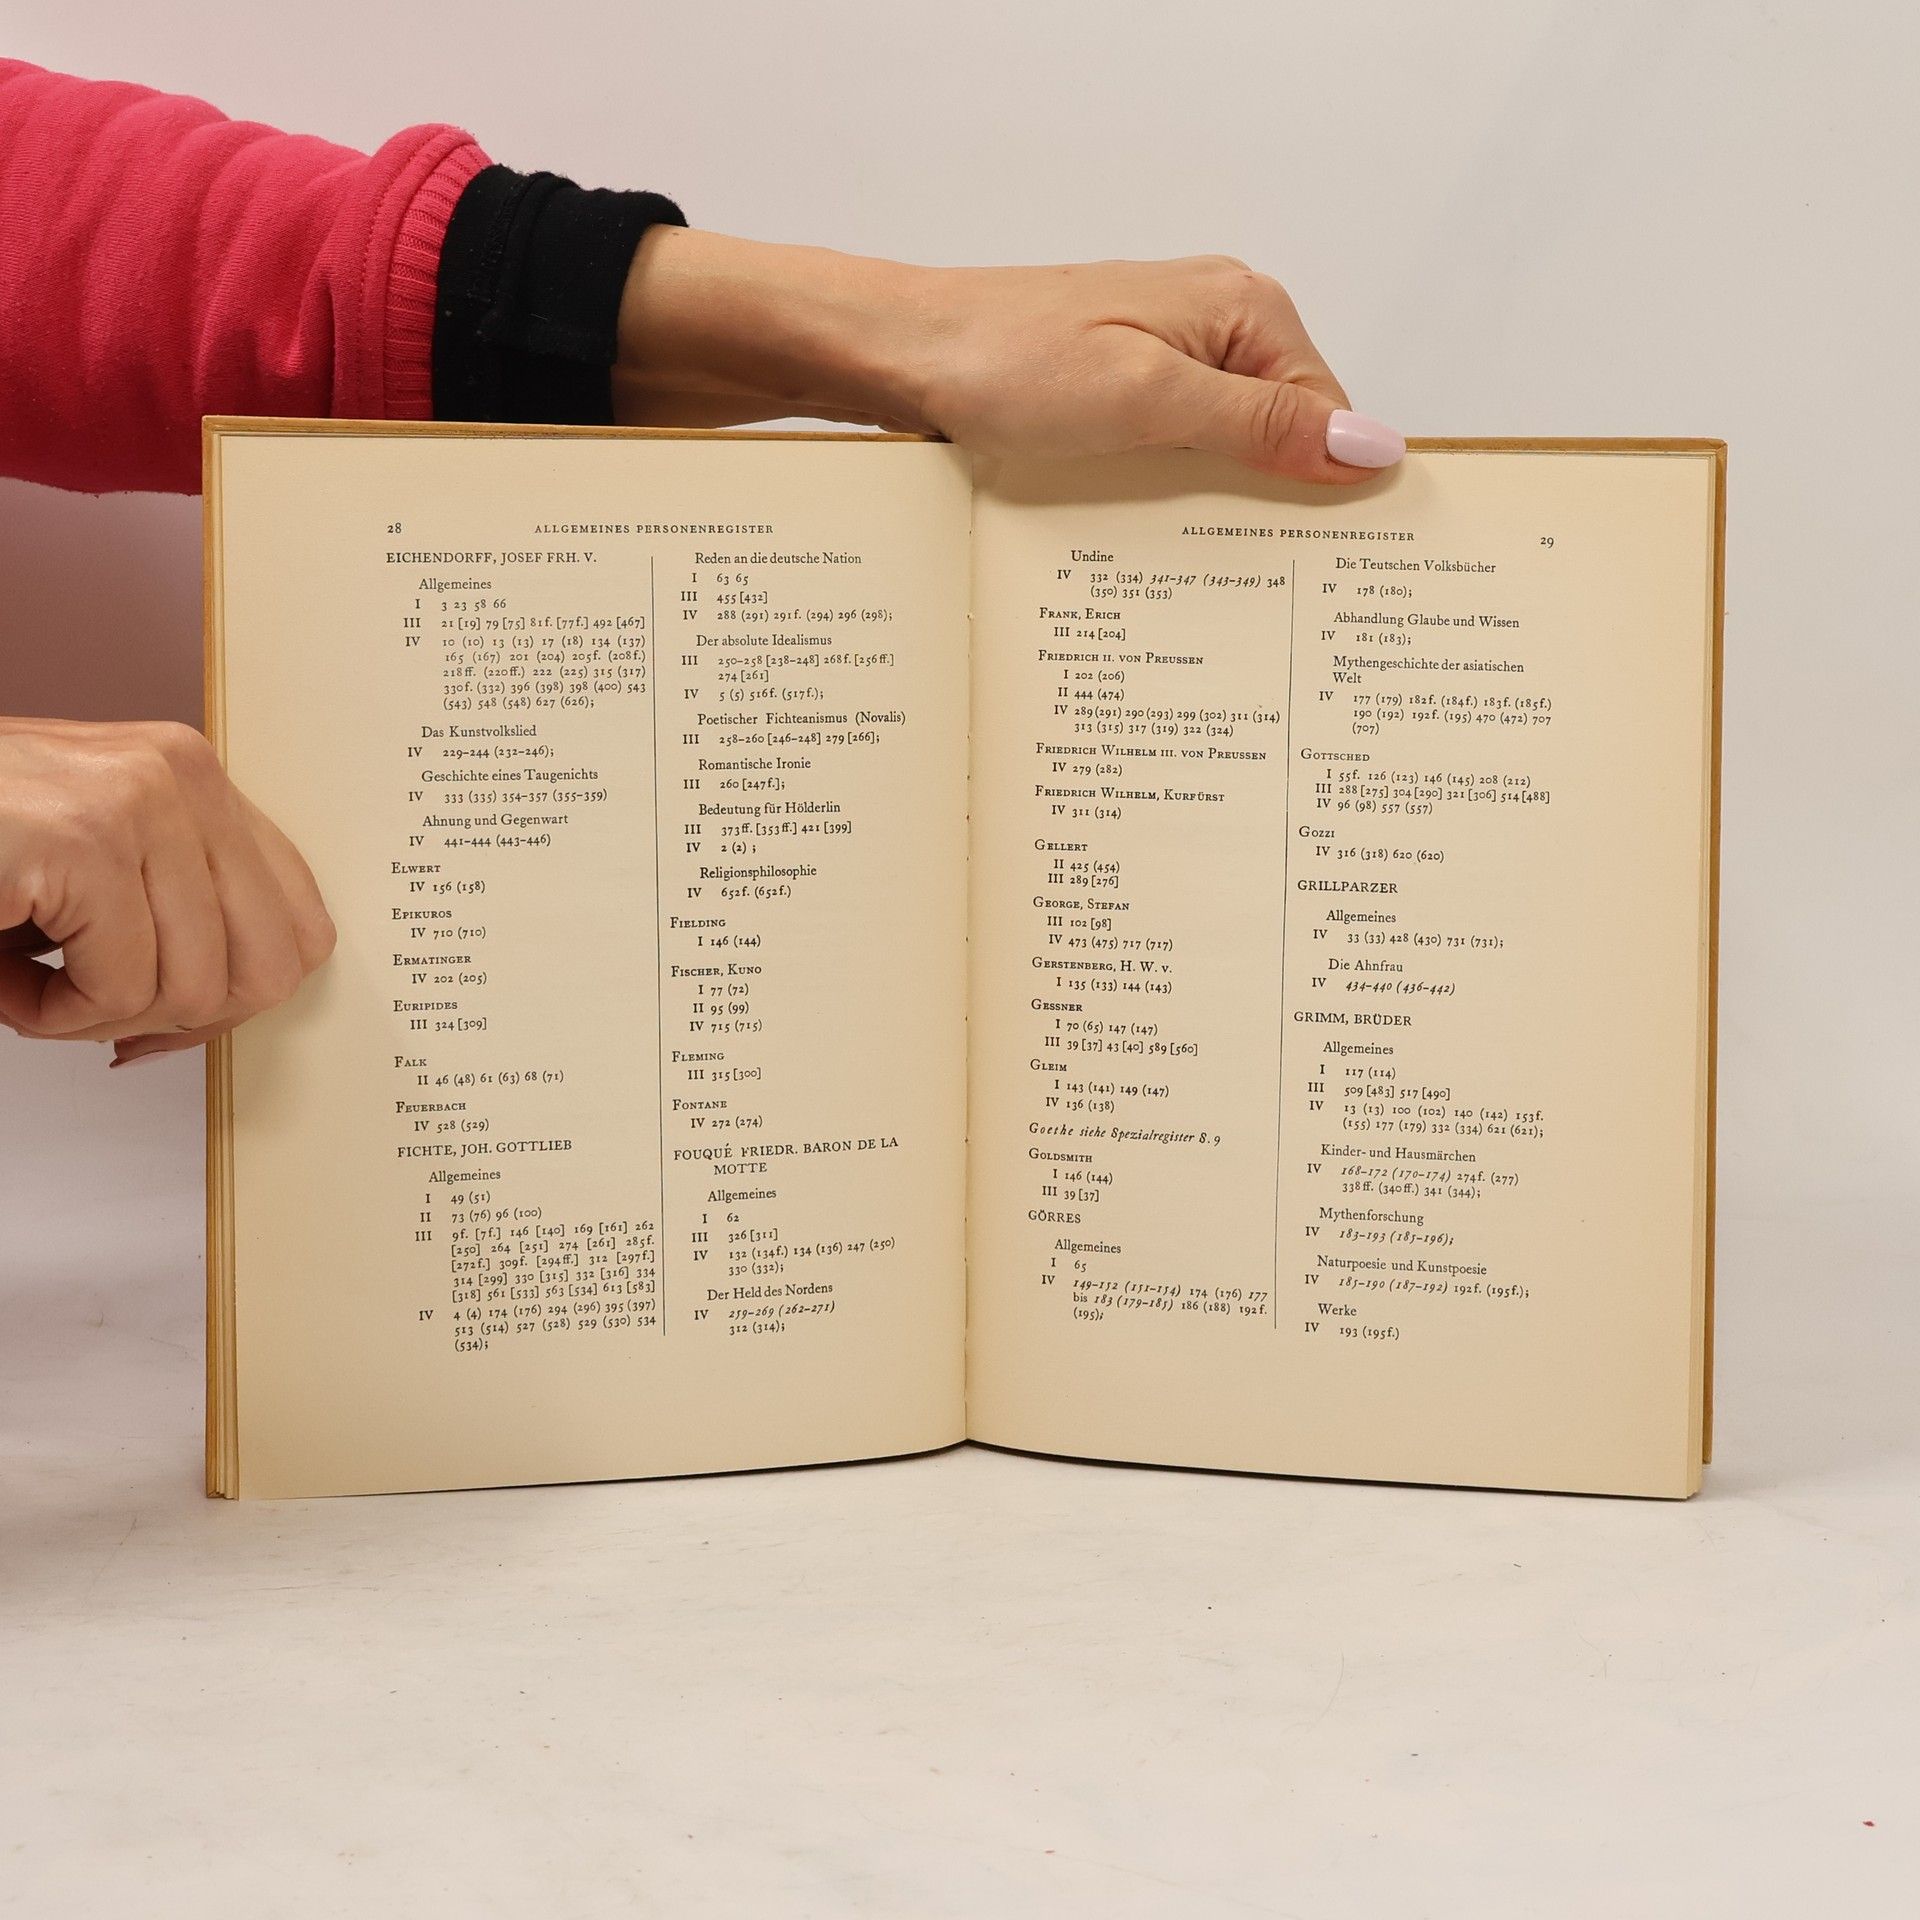 28
ALLGEMEINES PERSONENREGISTER
EICHENDORFF, JOSEF FRH. V.
Allgemeines
I 3 23 58 66
III 21 [19] 79 [75] 81f. [77f.] 492 [467]
IV 10 (10) 13 (13) 17 (18) 134 (137)
165 (167) 201 (204) 205f. (208f.)
218ff. (220ff.) 222 (225) 315 (317)
330f. (332) 396 (398) 398 (400) 543
(543) 548 (548) 627 (626);
Das Kunstvolkslied
IV 229–244 (232–246);
Geschichte eines Taugenichts
IV 333 (335) 354–357 (355–359)
Ahnung und Gegenwart
IV 441–444 (443–446)
ELWERT
IV 156 (158)
EPIKUROS
IV 710 (710)
ERMATINGER
IV 202 (205)
EURIPIDES
III 324 [309]
FALK
II 46 (48) 61 (63) 68 (71)
FEUERBACH
IV 528 (529)
FICHTE, JOH. GOTTLIEB
Allgemeines
I 49 (51)
II 73 (76) 96 (100)
III 9f. [7f.] 146 [140] 169 [161] 262
[250] 264 [251] 274 [261] 285f.
[272f.] 309f. [294ff.] 312 [297f.]
314 [299] 330 [315] 332 [316] 334
[318] 561 [533] 563 [534] 613 [583]
IV 4 (4) 174 (176) 294 (296) 395 (397)
513 (514) 527 (528) 529 (530) 534
(534);
Reden an die deutsche Nation
I 63 65
III 455 [432]
IV 288 (291) 291f. (294) 296 (298);
Der absolute Idealismus
III 250–258 [238–248] 268f. [256ff.]
274 [261]
IV 5 (5) 516f. (517f.);
Poetischer Fichteanismus (Novalis)
III 258–260 [246–248] 279 [266];
Romantische Ironie
III 260 [247f.];
Bedeutung für Hölderlin
III 373ff. [353ff.] 421 [399]
IV 2 (2) ;
Religionsphilosophie
IV 652f. (652f.)
FIELDING
I 146 (144)
FISCHER, KUNO
I 77 (72)
II 95 (99)
IV 715 (715)
FLEMING
III 315 [300]
FONTANE
IV 272 (274)
FOUQUÉ FRIEDR. BARON DE LA
MOTTE
Allgemeines
I 62
III 326 [311]
IV 132 (134f.) 134 (136) 247 (250)
330 (332);
Der Held des Nordens
IV 259–269 (262–271)
312 (314);
ALLGEMEINES PERSONENREGISTER
29
Undine
IV 332 (334) 341–347 (343–349) 348
(350) 351 (353)
FRANK, ERICH
III 214 [204]
FRIEDRICH II. VON PREUSSEN
I 202 (206)
II 444 (474)
IV 289 (291) 290 (293) 299 (302) 311 (314)
313 (315) 317 (319) 322 (324)
FRIEDRICH WILHELM III. VON PREUSSEN
IV 279 (282)
FRIEDRICH WILHELM, KURFÜRST
IV 311 (314)
GELLERT
II 425 (454)
III 289 [276]
GEORGE, STEFAN
III 102 [98]
IV 473 (475) 717 (717)
GERSTENBERG, H. W. V.
I 135 (133) 144 (143)
GESSNER
I 70 (65) 147 (147)
III 39 [37] 43 [40] 589 [560]
GLEIM
I 143 (141) 149 (147)
IV 136 (138)
Goethe siehe Spezialregister S. 9
GOLDSMITH
I 146 (144)
III 39 [37]
GÖRRES
Allgemeines
I 65
IV 149–152 (151–154) 174 (176) 177
bis 183 (179–185) 186 (188) 192f.
(195);
Die Teutschen Volksbücher
IV 178 (180);
Abhandlung Glaube und Wissen
IV 181 (183);
Mythengeschichte der asiatischen
Welt
IV 177 (179) 182f. (184f.) 183f. (185f.)
190 (192) 192f. (195) 470 (472) 707
(707)
GOTTSCHED
I 55f. 126 (123) 146 (145) 208 (212)
III 288 [275] 304 [290] 321 [306] 514 [488]
IV 96 (98) 557 (557)
GOZZI
IV 316 (318) 620 (620)
GRILLPARZER
Allgemeines
IV 33 (33) 428 (430) 731 (731);
Die Ahnfrau
IV 434–440 (436–442)
GRIMM, BRÜDER
Allgemeines
I 117 (114)
III 509 [483] 517 [490]
IV 13 (13) 100 (102) 140 (142) 153f.
(155) 177 (179) 332 (334) 621 (621);
Kinder- und Hausmärchen
IV 168–172 (170–174) 274f. (277)
338ff. (340ff.) 341 (344);
Mythenforschung
IV 183–193 (185–196);
Naturpoesie und Kunstpoesie
IV 185–190 (187–192) 192f. (195f.);
Werke
IV 193 (195f.)